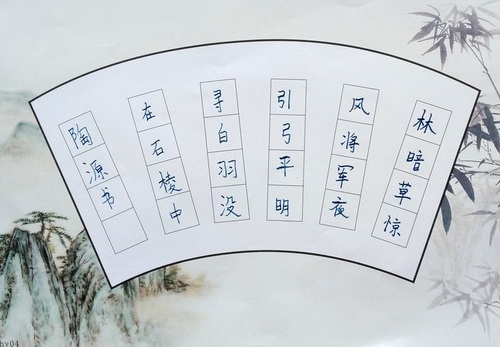 林暗草惊
风将军夜
引弓平明
寻白羽没
在石棱中
陶源书